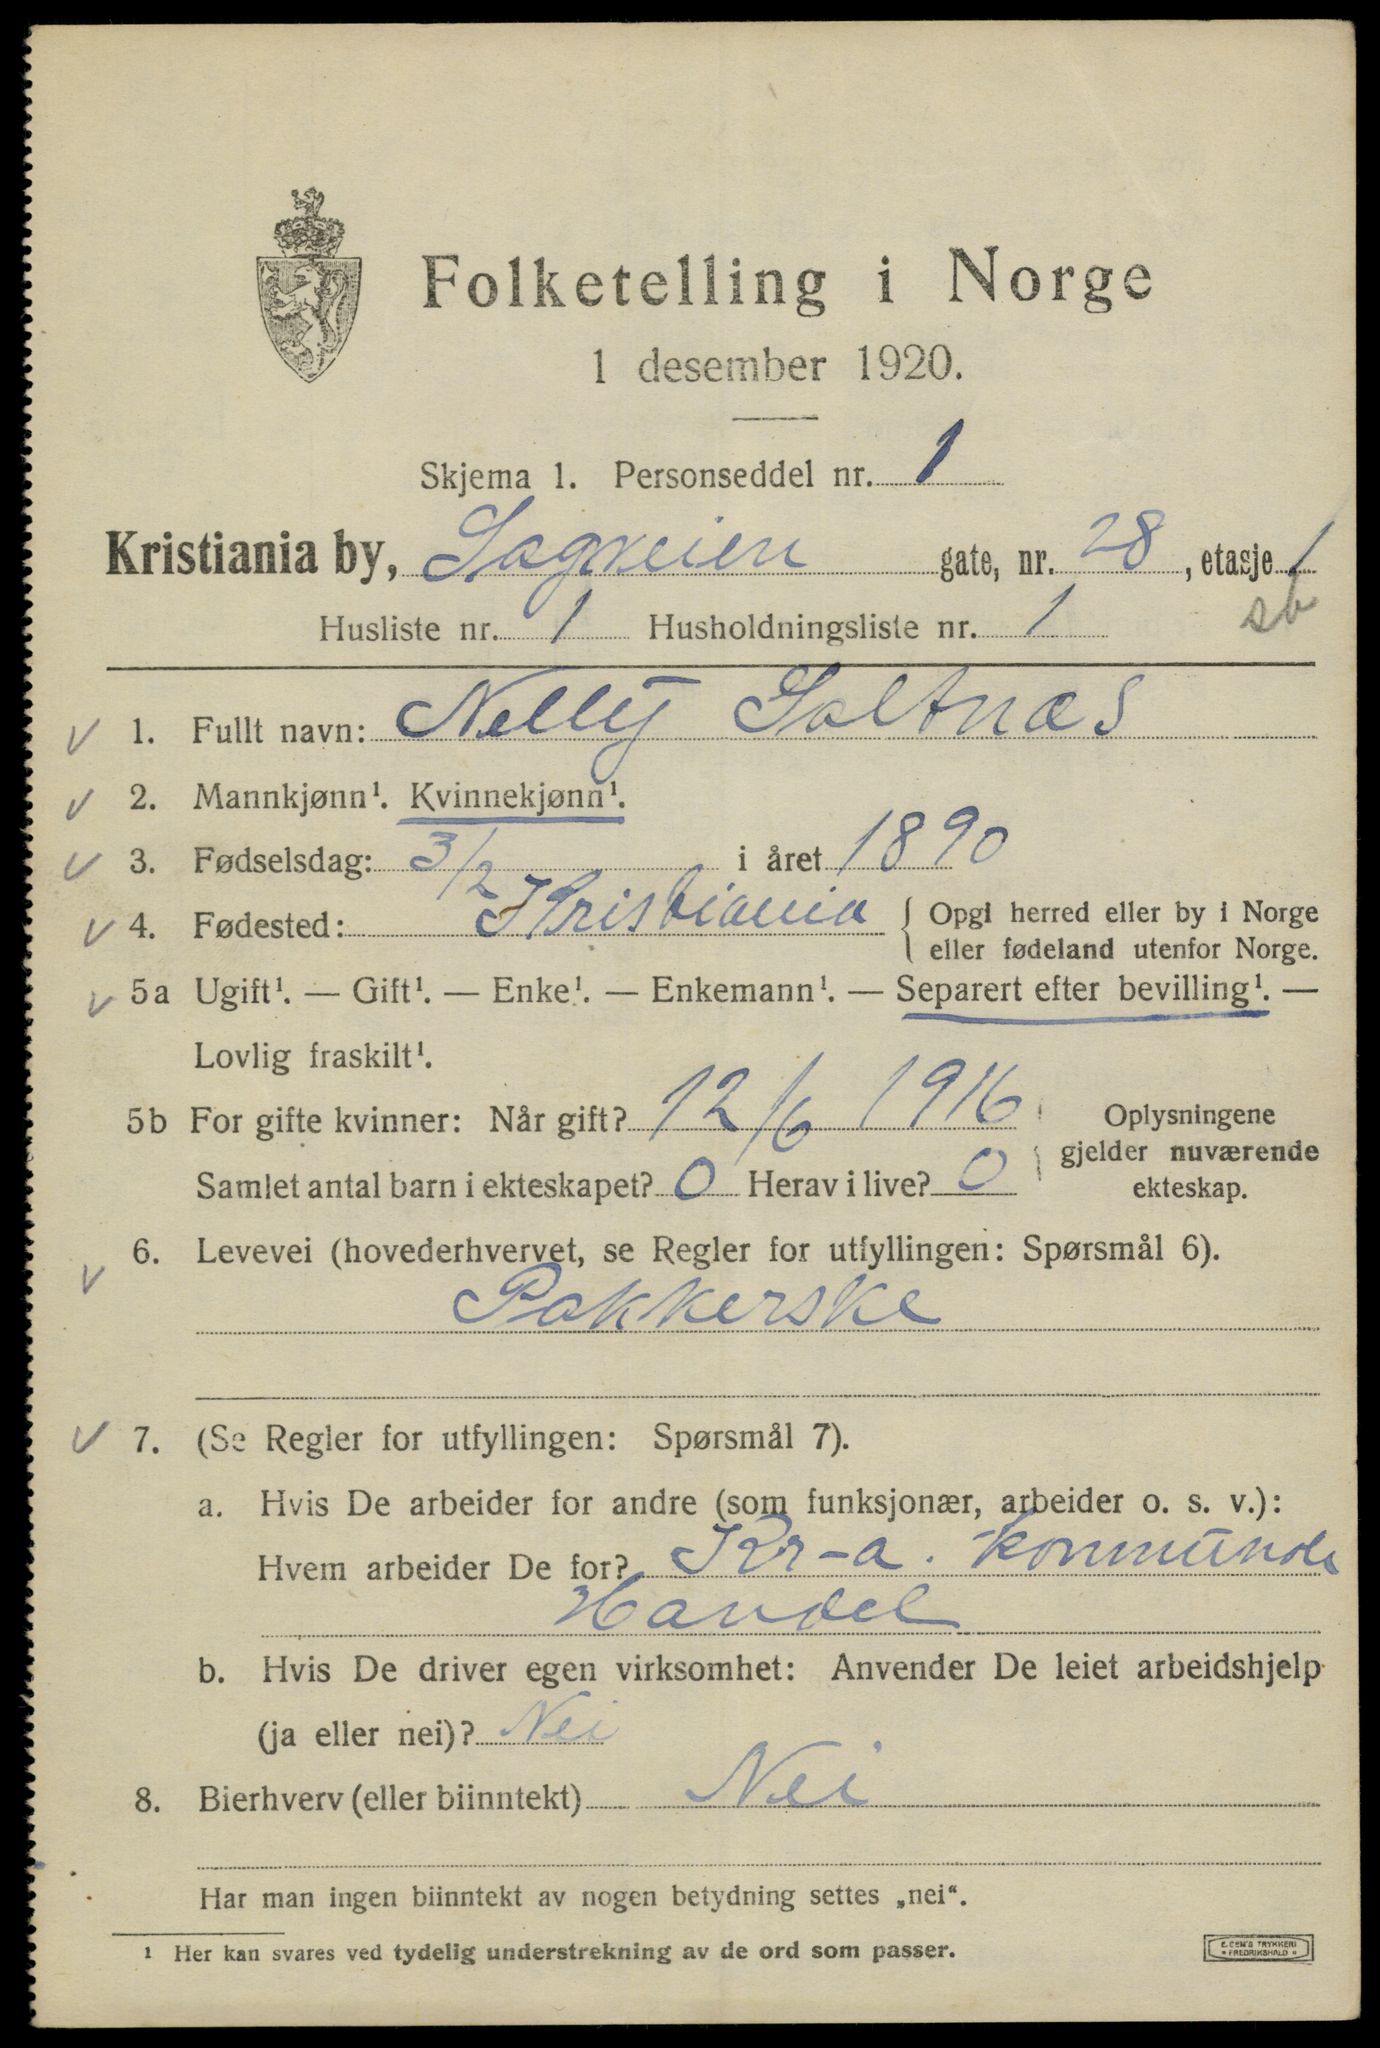 Folketelling i Norge
1 desember 1920.
Skjema 1. Personseddel nr. 1
Kristiania by, Sagveien gate, nr. 28, etasje 1
Husliste nr. 1 Husholdningsliste nr. 1 sb
1. Fullt navn: Nelly Saltnæs
2. Mannkjønn¹. Kvinnekjønn¹.
3. Fødselsdag: 3/2 i året 1890
4. Fødested: Kristiania { Opgi herred eller by i Norge
eller fødeland utenfor Norge.
5a Ugift¹. — Gift¹. — Enke¹. — Enkemann¹. — Separert efter bevilling¹. —
Lovlig fraskilt¹.
5b For gifte kvinner: Når gift? 12/6 1916 Oplysningene
gjelder nuværende
Samlet antal barn i ekteskapet? 0 Herav i live? 0 ekteskap.
6. Levevei (hovederhvervet, se Regler for utfyllingen: Spørsmål 6).
Pakkerske
7. (Se Regler for utfyllingen: Spørsmål 7).
a. Hvis De arbeider for andre (som funksjonær, arbeider o. s. v.):
Hvem arbeider De for? Kr-a.
Handel
b. Hvis De driver egen virksomhet: Anvender De leiet arbeidshjelp
(ja eller nei)? Nei
8. Bierhverv (eller biinntekt) Nei
Har man ingen biinntekt av nogen betydning settes „nei“.
¹ Her kan svares ved tydelig understrekning av de ord som passer.
E. SEM'S TRYKKERI
FREDRIKSHALD